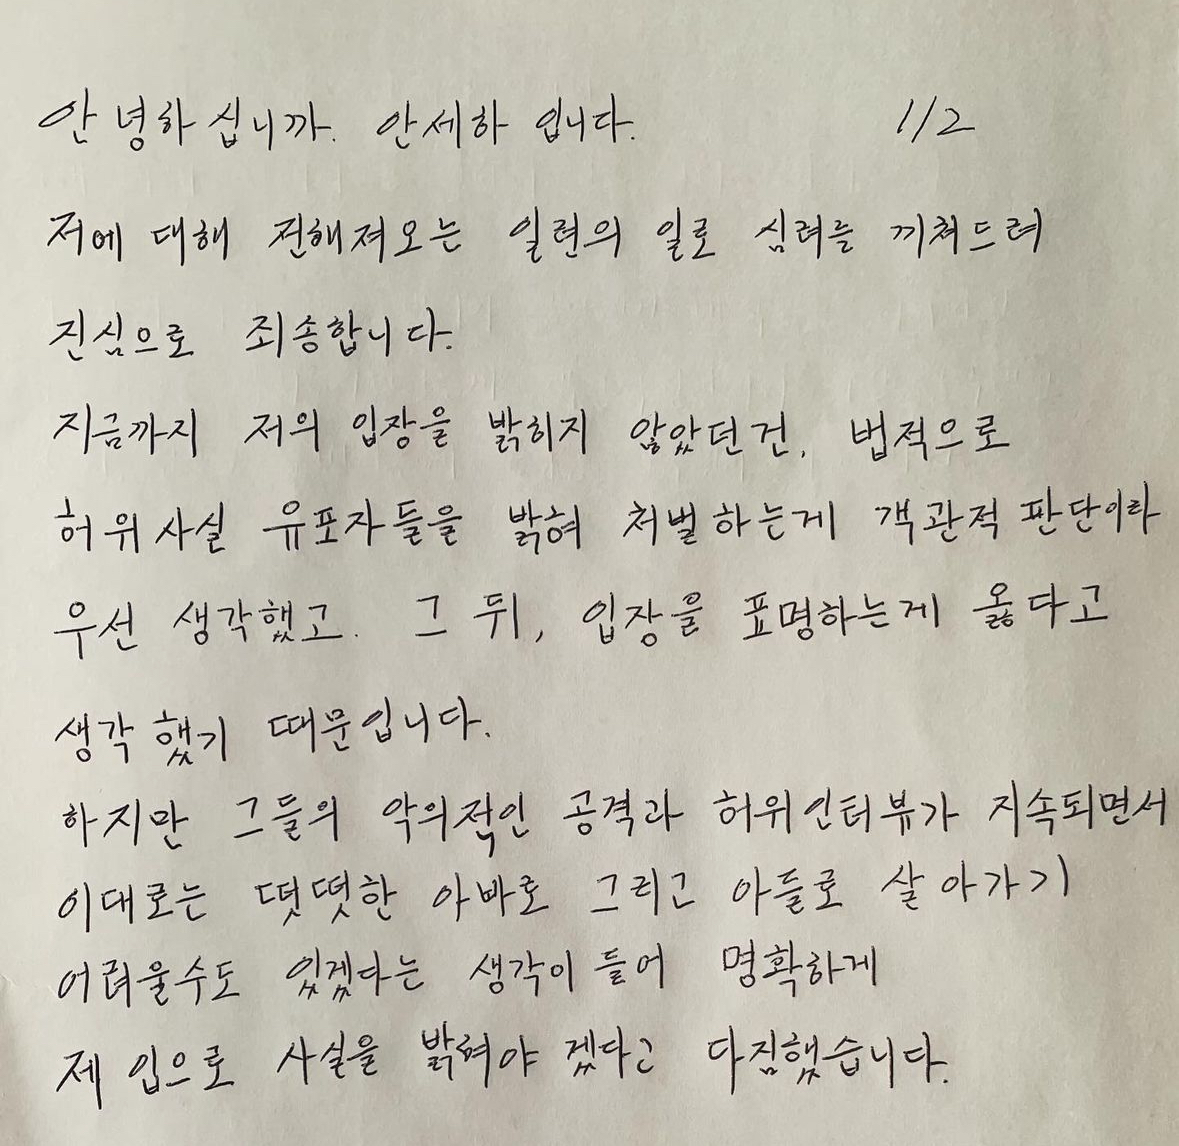 안녕하십니까. 안세하 입니다. 1/2
저에 대해 전해져오는 일련의 일로 심려를 끼쳐드려
진심으로 죄송합니다.
지금까지 저의 입장을 밝히지 않았던건, 법적으로
허위사실 유포자들을 밝혀 처벌하는게 객관적 판단이라
우선 생각했고. 그 뒤, 입장을 표명하는게 옳다고
생각했기 때문입니다.
하지만 그들의 악의적인 공격과 허위인터뷰가 지속되면서
이대로는 떳떳한 아빠로 그리고 아들로 살아가기
어려울수도 있겠다는 생각이 들어 명확하게
제 입으로 사실을 밝혀야 겠다고 다짐했습니다.